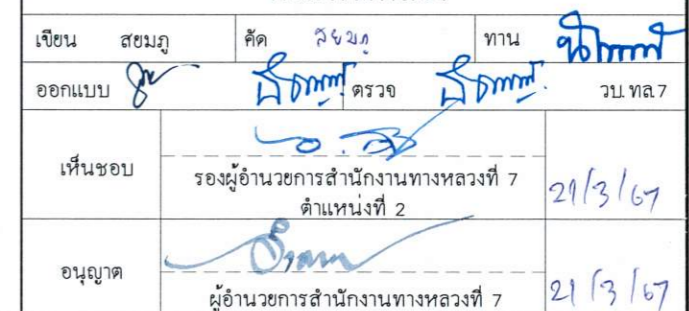 เขียน สยมภู คัด สยมภู ทาน
ออกแบบ ตรวจ วบ.ทล.7
เห็นชอบ
รองผู้อำนวยการสำนักงานทางหลวงที่ 7
ตำแหน่งที่ 2
21/3/67
อนุญาต
ผู้อำนวยการสำนักงานทางหลวงที่ 7
21/3/67